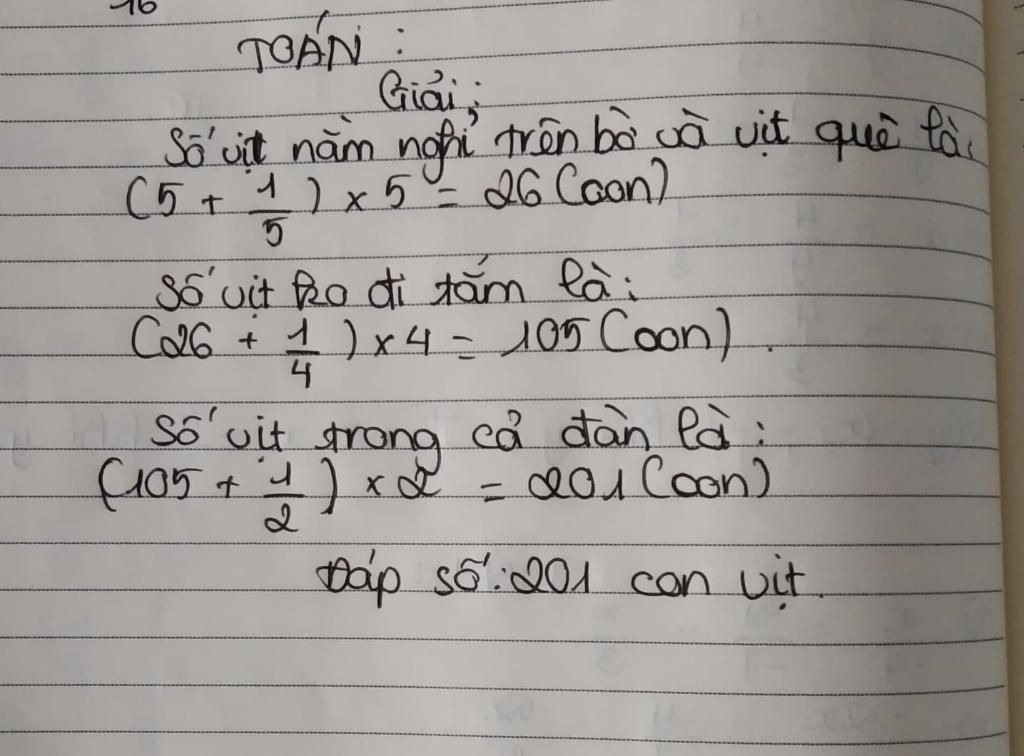 16
TOÁN :
Giải;
Số vịt nằm nghỉ trên bờ và vịt quê là:
(5 + 1/5) × 5 = 26 (con)
Số vịt bơ đi tắm là:
(26 + 1/4) × 4 = 105 (con).
Số vịt trong cả đàn là:
(105 + 1/2) × 2 = 201 (con)
Đáp số: 201 con vịt.